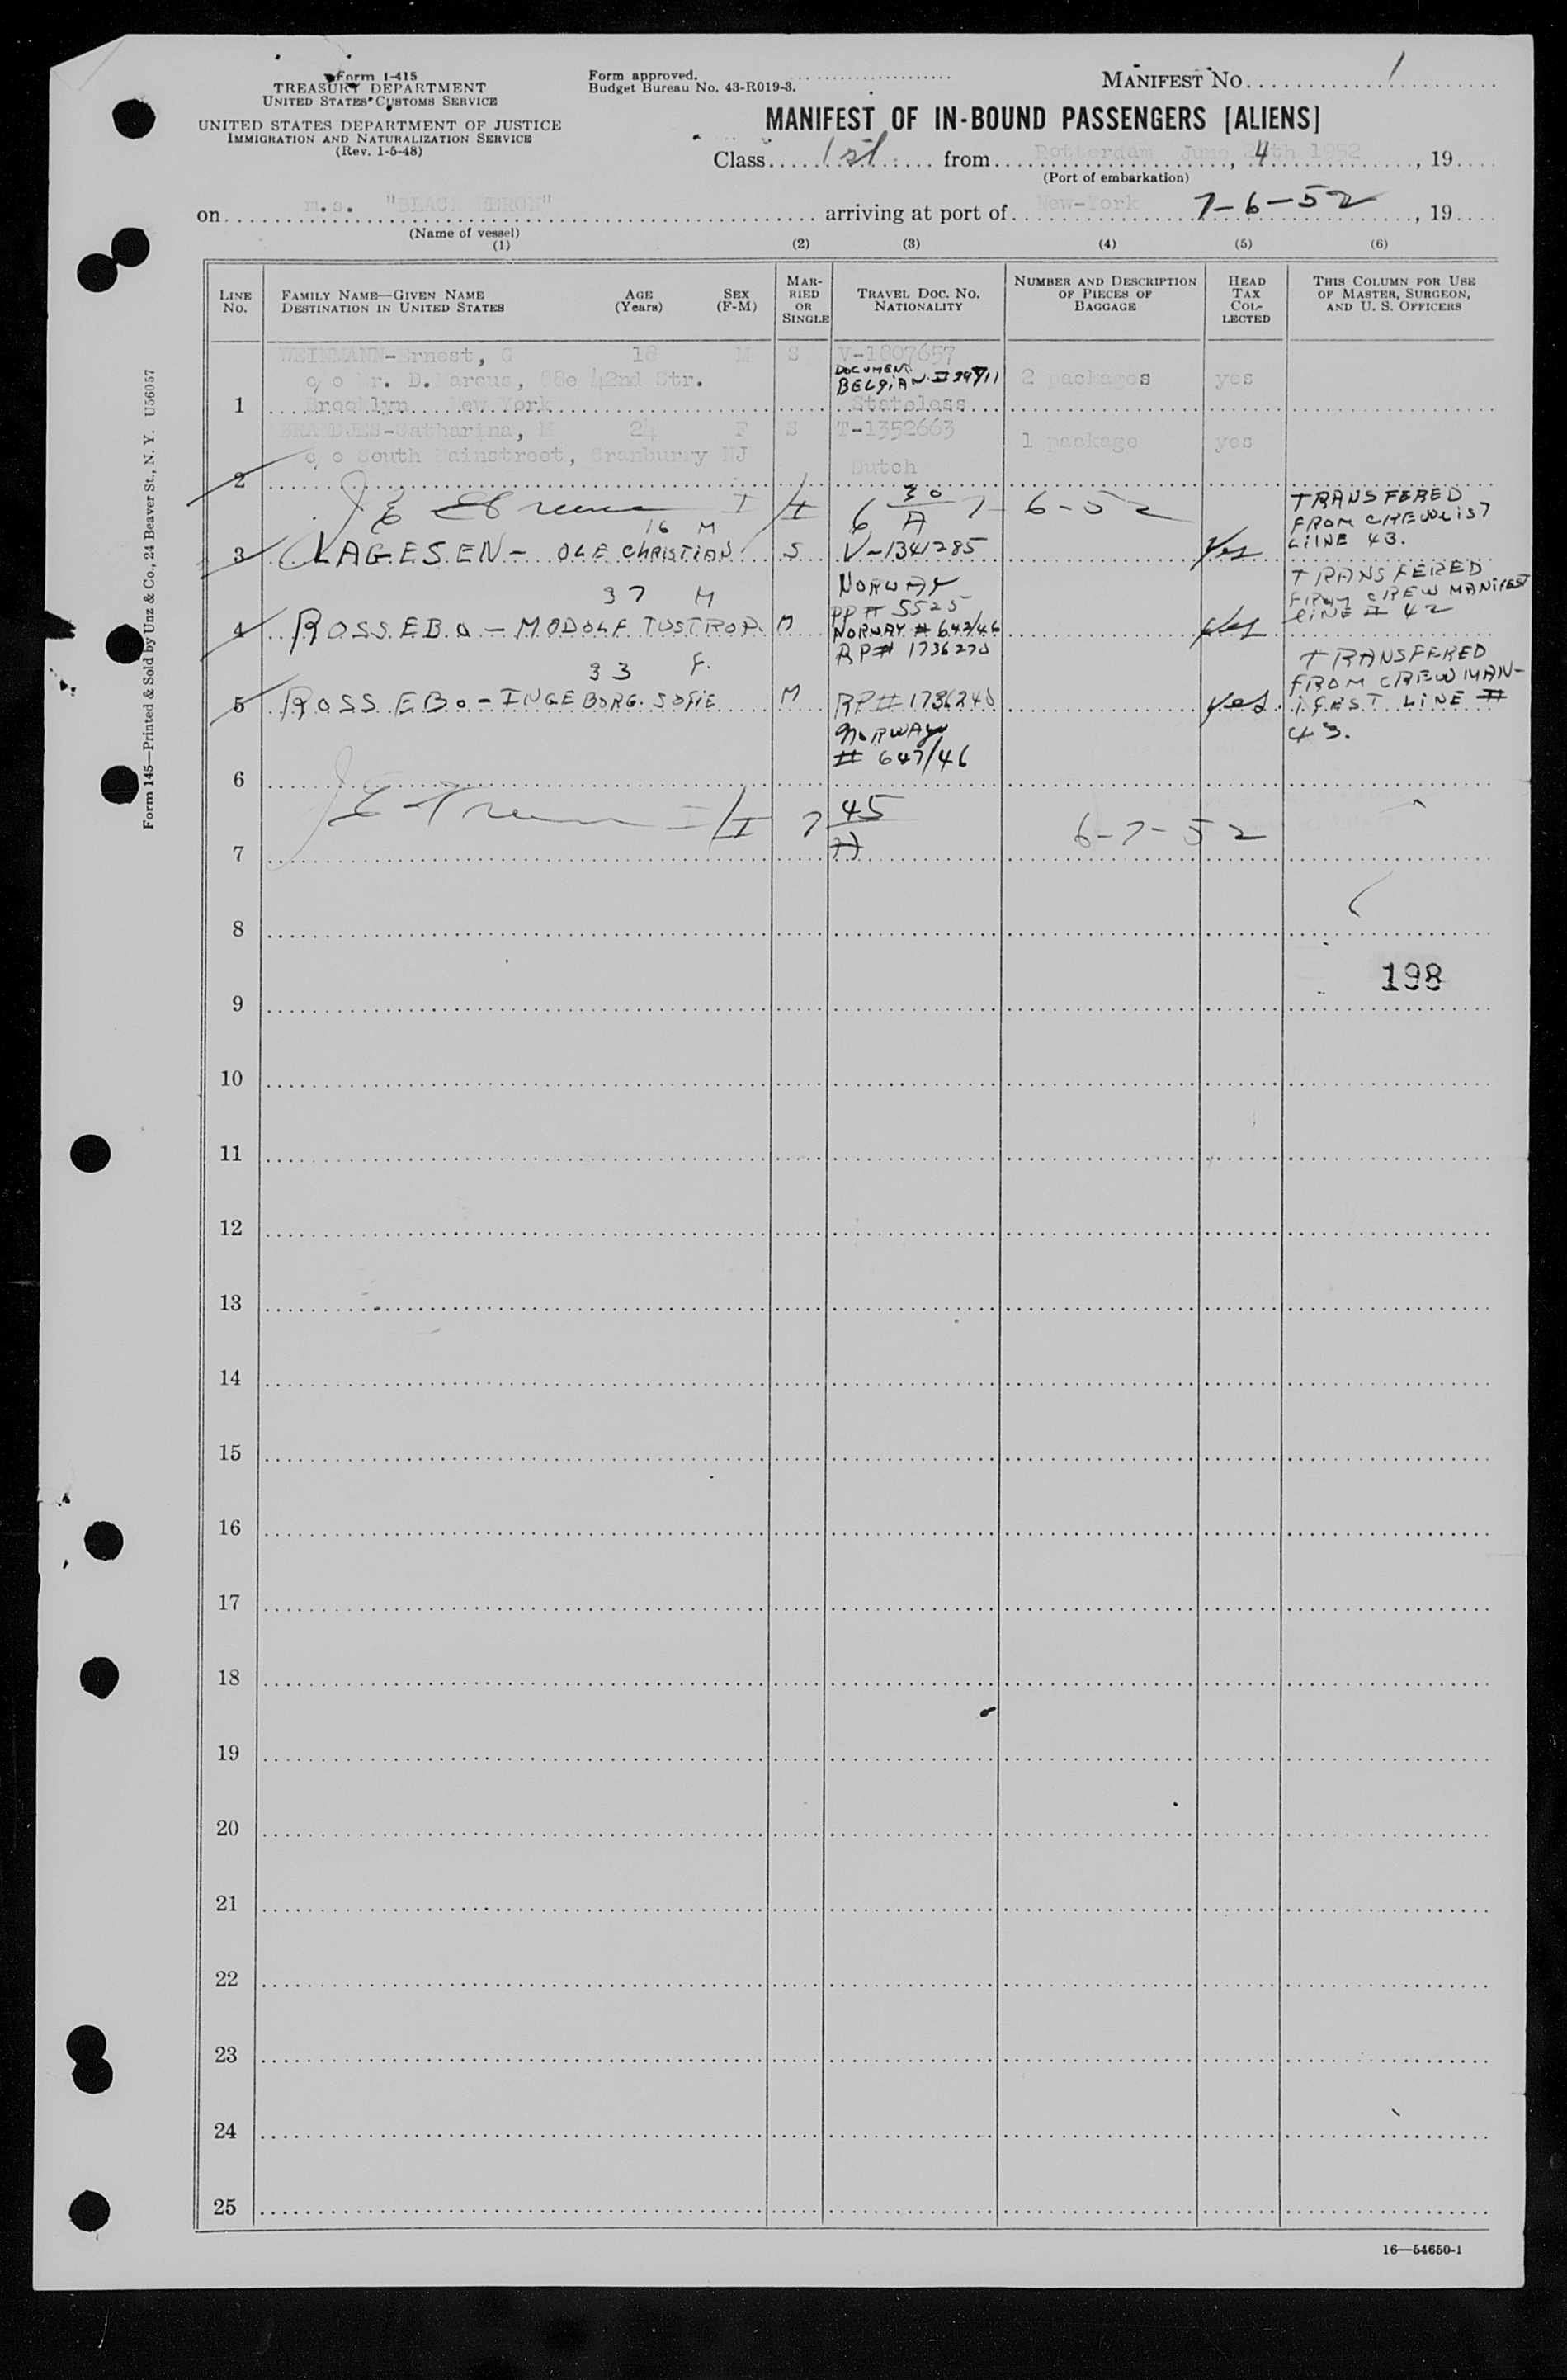 Form I-415
TREASURY DEPARTMENT
UNITED STATES CUSTOMS SERVICE
UNITED STATES DEPARTMENT OF JUSTICE
IMMIGRATION AND NATURALIZATION SERVICE
(Rev. 1-5-48)
Form approved.
Budget Bureau No. 43-R019-3.
MANIFEST NO. 1
MANIFEST OF IN-BOUND PASSENGERS [ALIENS]
Class 1st from Rotterdam June 4th 1952, 19
(Port of embarkation)
on m.s. "BLACK HERON" arriving at port of New-York 7-6-52, 19
(Name of vessel)
(1) (2) (3) (4) (5) (6)
LINE NO.
FAMILY NAME—GIVEN NAME
DESTINATION IN UNITED STATES
AGE (Years)
SEX (F-M)
MARRIED OR SINGLE
TRAVEL DOC. NO. NATIONALITY
NUMBER AND DESCRIPTION OF PIECES OF BAGGAGE
HEAD TAX COLLECTED
THIS COLUMN FOR USE OF MASTER, SURGEON, AND U. S. OFFICERS
WEINMANN-Ernest, G 18 M S V-1807657
DOCUMENT
c/o Mr. D. Marcus, 42nd Str. BELGIAN 2 packages yes
1 Brooklyn New York Stateless
BRANDJES-Catharina, M 24 F S T-1352663
1 package yes
c/o South Mainstreet, Cranburry NJ Dutch
2
30
6 A 7-6-52
TRANSFERED
FROM CREWLIST
LIINE 43.
16 M
3 LAGESEN - OLE CHRISTIAN S V-1341285 Yes
NORWAY
TRANSFERED
FROM CREW MANIFEST
LINE # 42
37 M PP # 5525
4 ROSSEBO - MODOLF TUSTROP. M NORWAY # 643/46 Yes
RP# 1736270
33 F.
TRANSFERED
FROM CREW MAN-
IFEST LINE #
43.
5 ROSSEBO - INGEBORG. SOFIE M RP# 1736240 yes.
NORWAY
# 647/46
6
7 45 6-7-52
7
8
198
9
10
11
12
13
14
15
16
17
18
19
20
21
22
23
24
25
16—54650-1
Form 145—Printed & Sold by Unz & Co., 24 Beaver St., N. Y. U56057